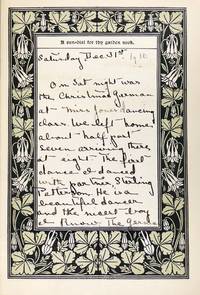 A sun-dial for thy garden nook.
Saturday Dec 31st 1910
On Sat night was
the Christmas German
at Miss Jones dancing
class. We left home
about half past
seven arriving there
at eight. The first
dance I danced
with partner, Sterling
Patterson. He is a
beautiful dancer
and the nicest boy
I know. The Germ